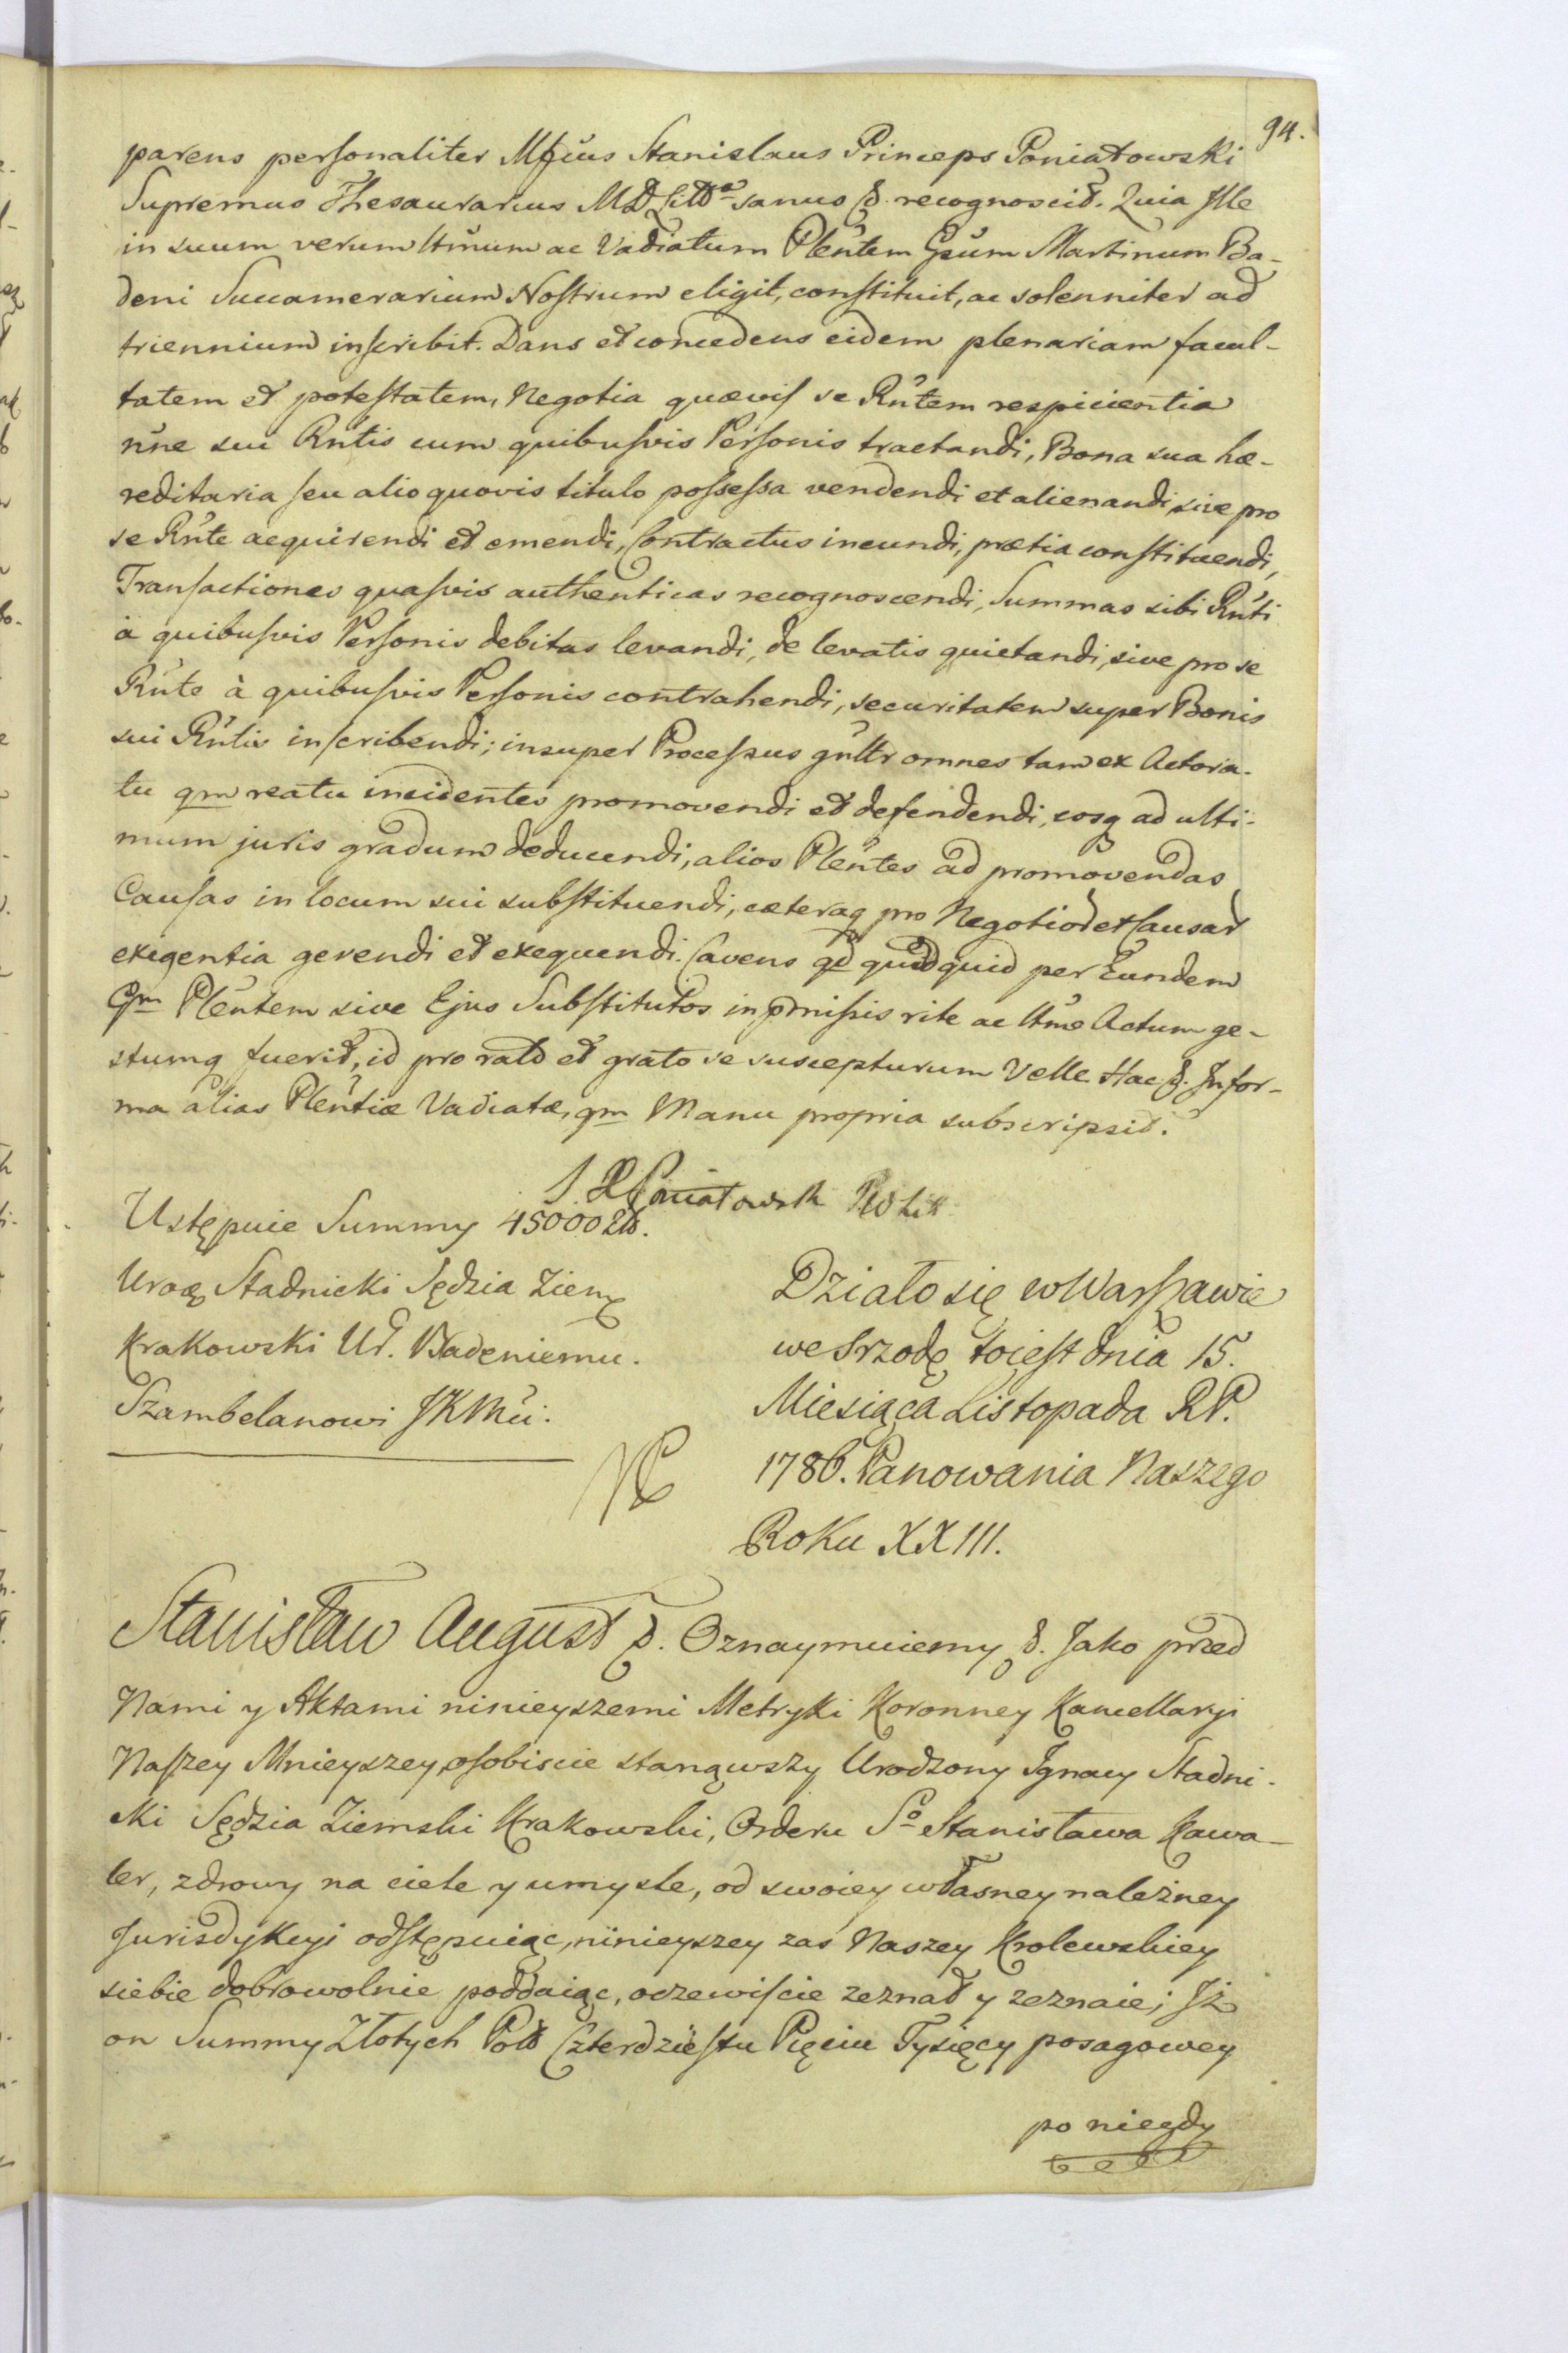 94.
parens personaliter Mfcus Stanislaus Princeps Poniatowski
Supremus Thesaurarius M.D. Litt. sanus &. recognoscit. Quia Ille
in suum verum ltmum ac Vadiatum Plentem Gsum Martinum Ba-
deni Succamerarium Nostrum eligit, constituit, ac solenniter ad
triennium inscribit. Dans et concedens eidem plenariam facul-
tatem et potestatem, Negotia quævis se Rntem respicientia
nne sui Rntis cum quibusvis Personis tractandi, Bona sua hæ-
reditaria seu alio quovis titulo possessa vendendi et alienandi sive pro
se Rnte acquirendi et emendi, Contractus ineundi, prætia constituendi,
Transactiones quasvis authenticas recognoscendi, Summas sibi Rnti
à quibusvis Personis debitas levandi, de levatis quietandi, sive pro se
Rnte à quibusvis Personis contrahendi, securitatem super Bonis
sui Rntis inscribendi; insuper Processus gnltr omnes tam ex Actora-
tu qm reatu incidentes promovendi et defendendi, eosq ad ulti-
mum juris gradum deducendi, alios Plentes ad promovendas
Causas in locum sui substituendi, cæteraq pro Negotior et Causar
exigentia gerendi et exequendi. Cavens qd quidquid per Eundem
Gm Plentem sive Ejus Substitutos in pmissis rite ac ltme Actum ge-
stumq fuerit, id pro rato et grato se suscepturum Velle. Hac &. In for-
ma alias Plentiæ Vadiatæ, qm Manu propria subscripsit.
S. X Poniatowski
Ustępuie Summy 45000 Zł.
Uroq Stadnicki Sędzia Ziem
Krakowski Ur. Badeniemu.
Szambelanowi JKMci.
Działo się w Warszawie
we Srzodę toiest dnia 15.
Miesiąca Listopada RP.
1786. Panowania Naszego
Roku XXIII.
Stanisław August &. Oznaymuiemy &. Jako przed
Nami y Aktami ninieyszemi Metryki Koronney Kancellaryi
Naszey Mnieyszey, osobiscie stanąwszy Urodzony Ignacy Stadni-
cki Sędzia Ziemski Krakowski, Orderu So Stanisława Kawa-
ler, zdrowy na ciele y umysle, od swoiey własney należney
Jurisdykcyi odstępuiąc, ninieyszey zas Naszey Krolewskiey
siebie dobrowolnie poddaiąc, oczewiscie zeznał y zeznaie; Iż
on Summy Złotych Pols Czterdziestu Pięciu Tysięcy posagowey
po niegdy